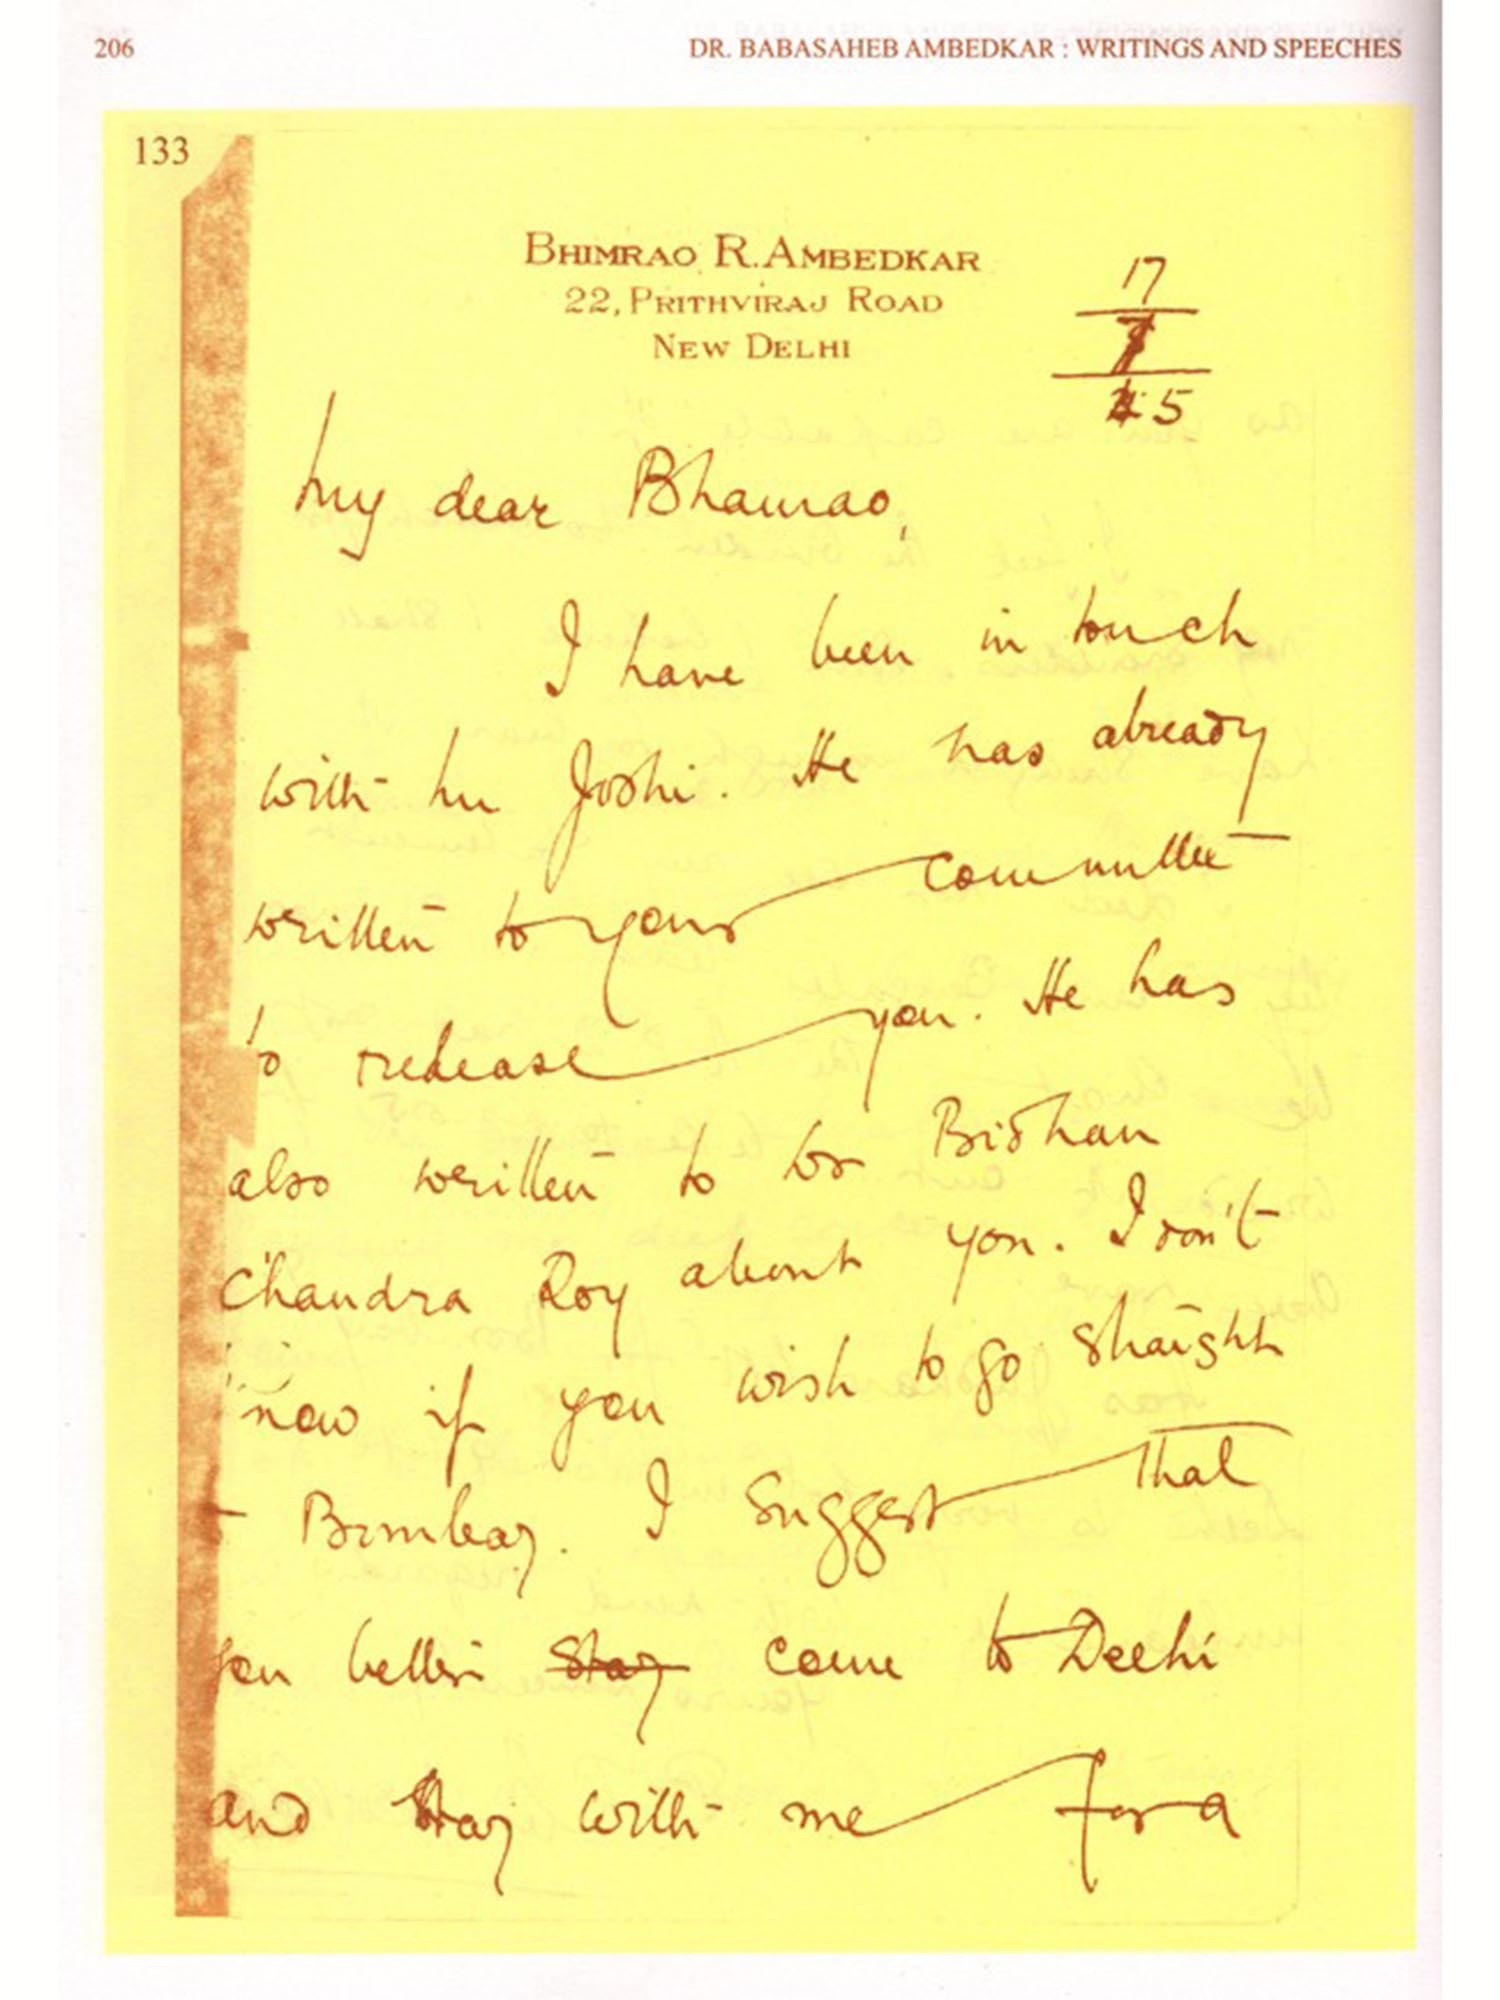 206
DR. BABASAHEB AMBEDKAR : WRITINGS AND SPEECHES
133
BHIMRAO R. AMBEDKAR
22, PRITHVIRAJ ROAD
NEW DELHI
17
45
My dear Bhaurao,
I have been in touch
with Mr Joshi. He has already
written to your committee
to release you. He has
also written to Dr Bidhan
Chandra Roy about you. I don't
know if you wish to go straight
to Bombay. I suggest that
you better stay come to Delhi
and stay with me for a